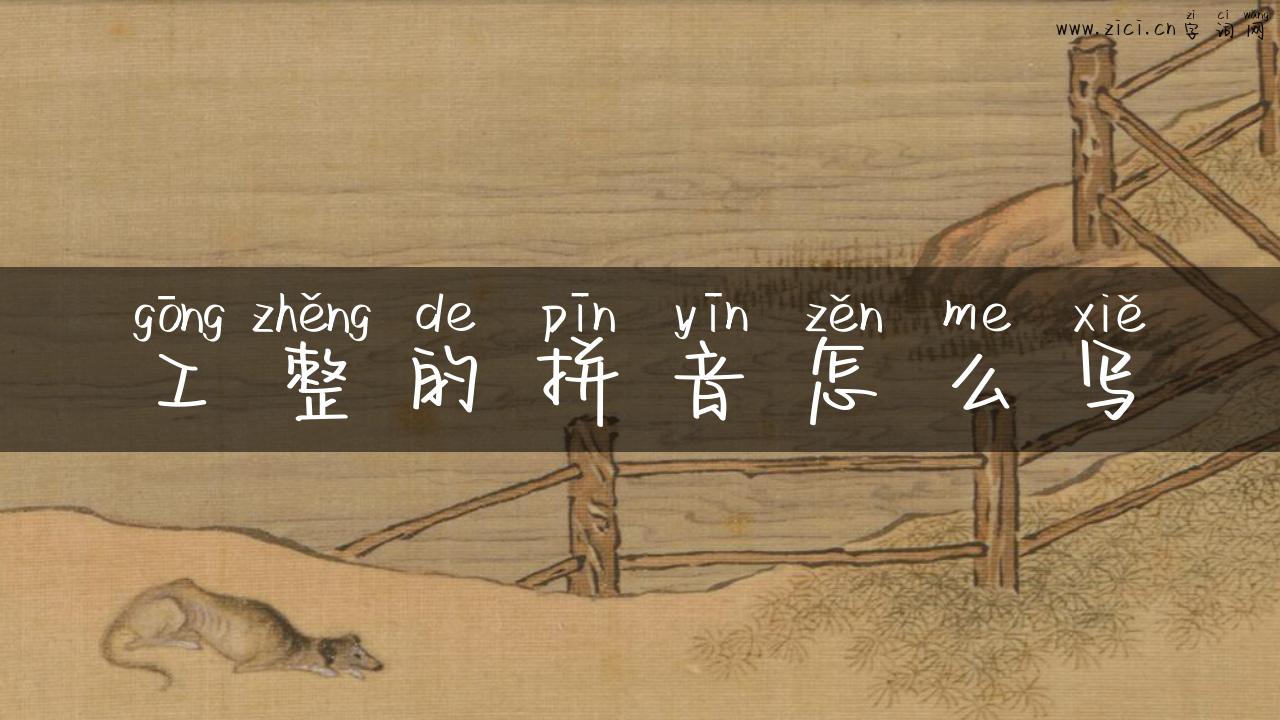 zi ci wang
www.zici.cn 字词网
gōng zhěng de pīn yīn zěn me xiě
工整的拼音怎么写